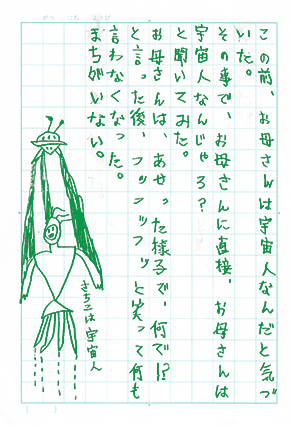 この前、お母さんは宇宙人なんだと気づ
いた。
その事で、お母さんに直接、お母さんは
宇宙人なんじゃろ？
と聞いてみた。
お母さんは、あせった様子で、何で！？
と言った後、フッフッフッと笑って何も
言わなくなった。
まちがいない。
さちこは宇宙人